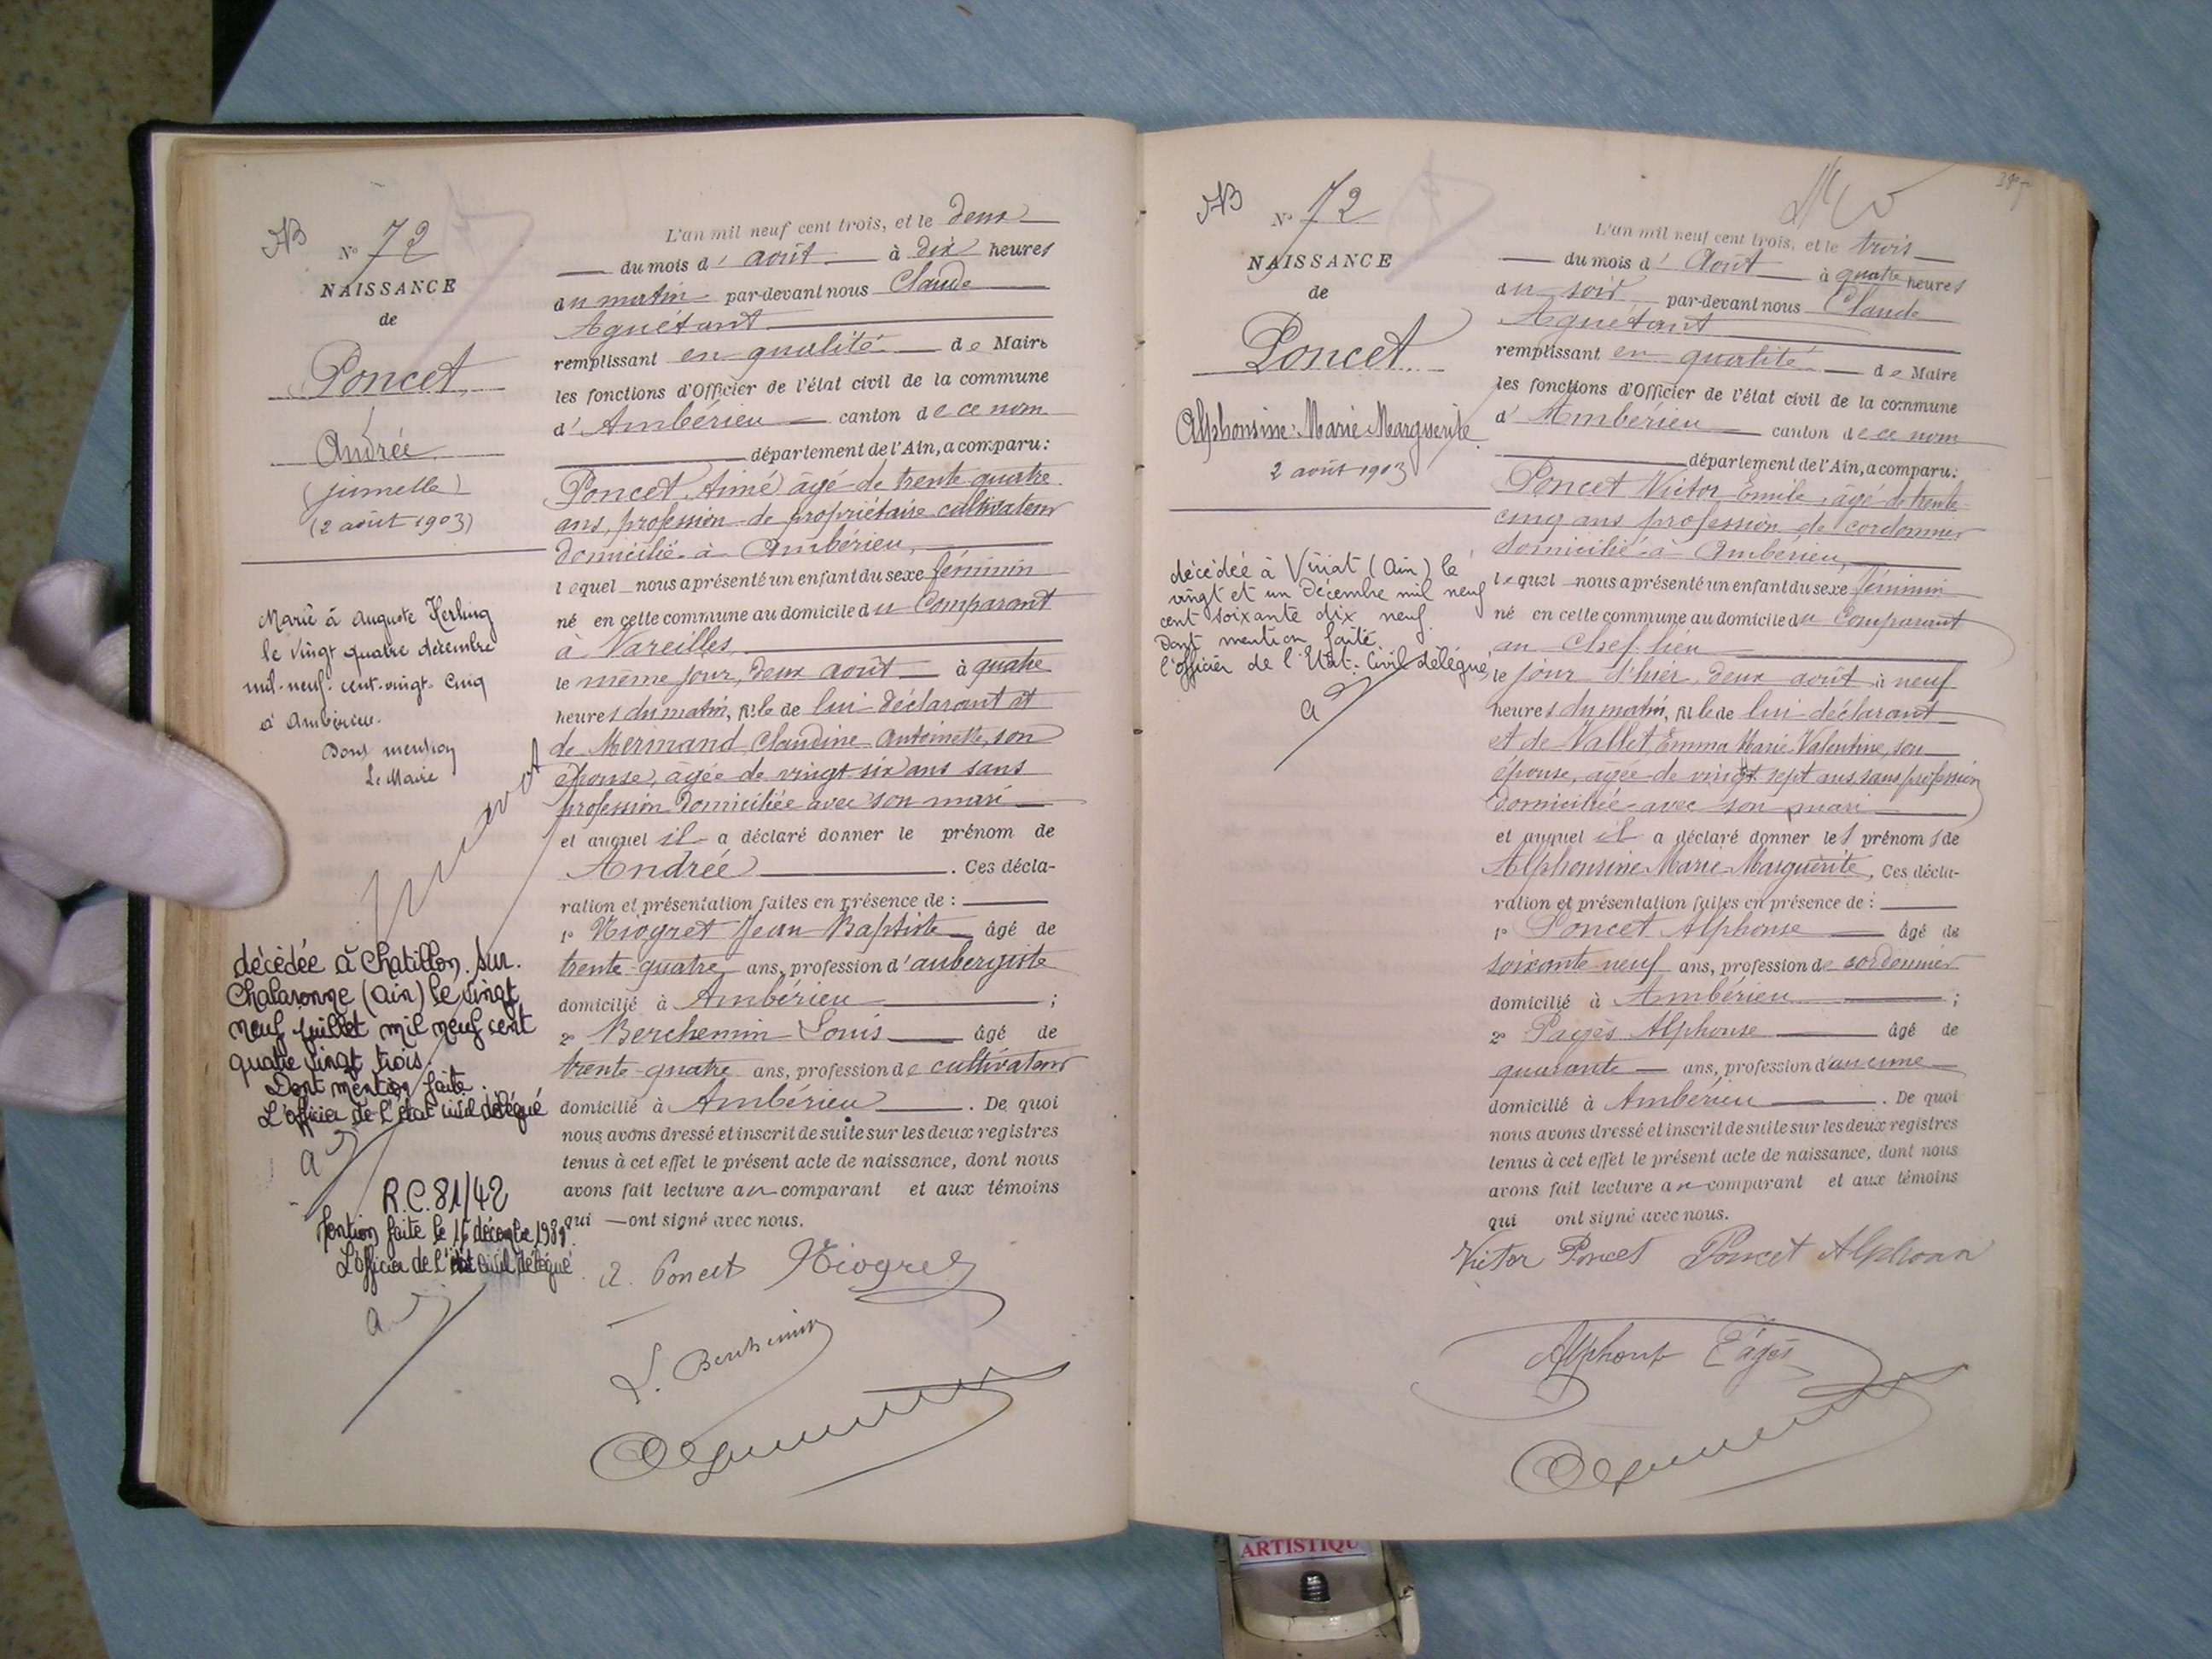 N° 72
NAISSANCE
de
Poncet
Andrée
(jumelle)
(2 août 1903)
Marié à Auguste Herling
le vingt quatre décembre
mil-neuf-cent-vingt-cinq
à Ambérieu.
Dont mention
Le Maire
décédée à Chatillon. sur.
Chalaronne (Ain) le vingt
neuf juillet mil neuf cent
quatre vingt trois.
Dont mention faite.
L'officier de l'état civil délégué
R.C. 81/42
Mention faite le 15 décembre 1989.
L'officier de l'état civil délégué
L'an mil neuf cent trois, et le deux
du mois d' août à dix heures
du matin par-devant nous Claude
Aguétant
remplissant en qualité de Maire
les fonctions d'Officier de l'état civil de la commune
d' Ambérieu canton de ce nom
département de l'Ain, a comparu :
Poncet Aimé âgé de trente quatre
ans, profession de propriétaire cultivateur
domicilié à Ambérieu,
lequel nous a présenté un enfant du sexe féminin
né en cette commune au domicile du Comparant
à Vareilles
le même jour, deux août à quatre
heures du matin, fille de lui déclarant et
de Mermand Claudine Antoinette, son
épouse, âgée de vingt six ans sans
profession domiciliée avec son mari
et auquel il a déclaré donner le prénom de
Andrée . Ces décla-
ration et présentation faites en présence de :
1° Niogret Jean Baptiste âgé de
trente-quatre ans, profession d'aubergiste
domicilié à Ambérieu ;
2° Berchemin Louis âgé de
trente-quatre ans, profession de cultivateur
domicilié à Ambérieu . De quoi
nous avons dressé et inscrit de suite sur les deux registres
tenus à cet effet le présent acte de naissance, dont nous
avons fait lecture au comparant et aux témoins
qui ont signé avec nous.
A. Poncet Niogret
L. Berchemin
N° 72
NAISSANCE
de
Poncet
Alphonsine-Marie-Marguerite
2 août 1903
décédée à Viriat (Ain) le
vingt et un Décembre mil neuf
cent soixante dix neuf.
Dont mention faite
l'officier de l'Etat-Civil délégué,
L'an mil neuf cent trois, et le trois
du mois d' Août à quatre heures
du soir par-devant nous Claude
Aguétant
remplissant en qualité de Maire
les fonctions d'Officier de l'état civil de la commune
d' Ambérieu canton de ce nom
département de l'Ain, a comparu :
Poncet Victor Emile, âgé de trente-
cinq ans profession de cordonnier
domicilié à Ambérieu,
lequel nous a présenté un enfant du sexe féminin
né en cette commune au domicile du Comparant
au Chef-lieu
le jour d'hier, deux août à neuf
heures du matin, fille de lui déclarant
et de Vallet, Emma Marie Valentine, son
épouse, âgée de vingt sept ans sans profession
domiciliée avec son mari
et auquel il a déclaré donner les prénoms de
Alphonsine Marie Marguerite. Ces décla-
ration et présentation faites en présence de :
1° Poncet Alphonse âgé de
soixante-neuf ans, profession de cordonnier
domicilié à Ambérieu ;
2° Pagès Alphonse âgé de
quarante ans, profession d'aucune
domicilié à Ambérieu . De quoi
nous avons dressé et inscrit de suite sur les deux registres
tenus à cet effet le présent acte de naissance, dont nous
avons fait lecture au comparant et aux témoins
qui ont signé avec nous.
Victor Poncet Poncet Alphonse
Alphonse Pagès
ARTISTIQU